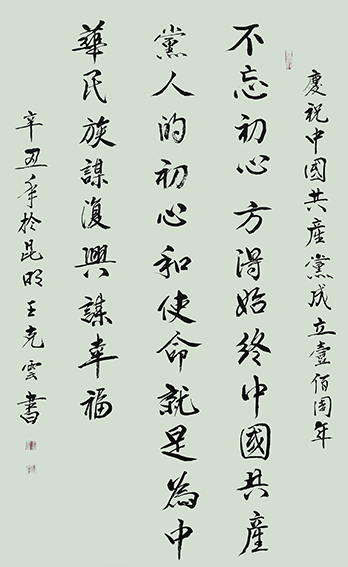 慶祝中國共產黨成立壹佰周年
不忘初心方得始終中國共產
黨人的初心和使命就是為中
華民族謀復興謀幸福
辛丑年於昆明王克雲書